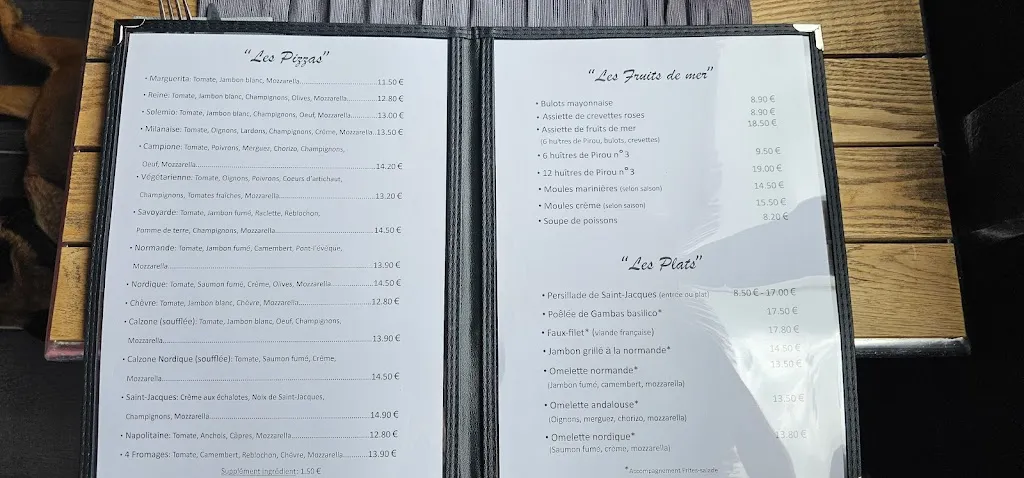 "Les Pizzas"
• Marguerita: Tomate, Jambon blanc, Mozzarella...................................11.50 €
• Reine: Tomate, Jambon blanc, Champignons, Olives, Mozzarella...............12.80 €
• Solemio: Tomate, Jambon blanc, Champignons, Oeuf, Mozzarella.............13.00 €
• Milanaise: Tomate, Oignons, Lardons, Champignons, Crème, Mozzarella..13.50 €
• Campione: Tomate, Poivrons, Merguez, Chorizo, Champignons,
Oeuf, Mozzarella..................................................................14.20 €
• Végétarienne: Tomate, Oignons, Poivrons, Coeurs d'artichaut,
Champignons, Tomates fraîches, Mozzarella.....................................13.20 €
• Savoyarde: Tomate, Jambon fumé, Raclette, Reblochon,
Pomme de terre, Champignons, Mozzarella.....................................14.50 €
• Normande: Tomate, Jambon fumé, Camembert, Pont-l'évêque,
Mozzarella..................................................................13.90 €
• Nordique: Tomate, Saumon fumé, Crème, Olives, Mozzarella...............14.50 €
• Chèvre: Tomate, Jambon blanc, Chèvre, Mozzarella............................12.80 €
• Calzone (soufflée): Tomate, Jambon blanc, Oeuf, Champignons,
Mozzarella..................................................................13.90 €
• Calzone Nordique (soufflée): Tomate, Saumon fumé, Crème,
Mozzarella..................................................................14.50 €
• Saint-Jacques: Crème aux échalotes, Noix de Saint-Jacques,
Champignons, Mozzarella..................................................14.90 €
• Napolitaine: Tomate, Anchois, Câpres, Mozzarella............................12.80 €
• 4 Fromages: Tomate, Camembert, Reblochon, Chèvre, Mozzarella.........13.90 €
Supplément ingrédient: 1.50 €
"Les Fruits de mer"
• Bulots mayonnaise 8.90 €
• Assiette de crevettes roses 8.90 €
• Assiette de fruits de mer 18.50 €
(6 huîtres de Pirou, bulots, crevettes)
• 6 huîtres de Pirou n°3 9.50 €
• 12 huîtres de Pirou n°3 19.00 €
• Moules marinières (selon saison) 14.50 €
• Moules crème (selon saison) 15.50 €
• Soupe de poissons 8.20 €
"Les Plats"
• Persillade de Saint-Jacques (entrée ou plat) 8.50 € - 17.00 €
• Poêlée de Gambas basilico* 17.50 €
• Faux-filet* (viande française) 17.80 €
• Jambon grillé à la normande* 14.50 €
• Omelette normande* 13.50 €
(Jambon fumé, camembert, mozzarella)
• Omelette andalouse* 13.50 €
(Oignons, merguez, chorizo, mozzarella)
• Omelette nordique* 13.80 €
(Saumon fumé, crème, mozzarella)
*Accompagnement Frites-salade